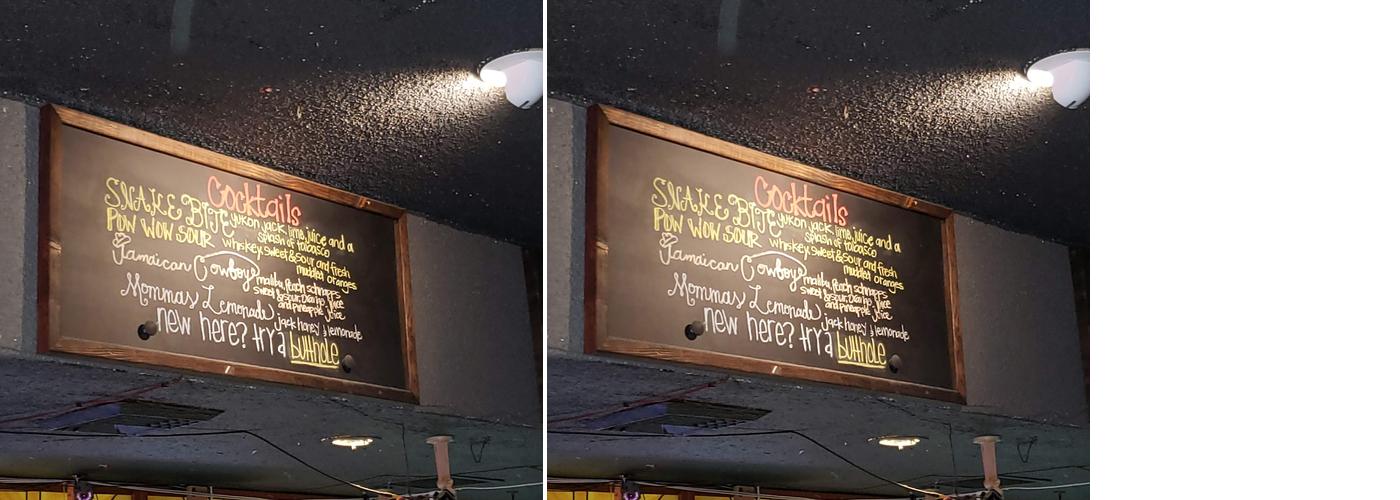 Cocktails
SNAKE BITE yukon jack, lime juice and a
splash of tobasco
POW WOW SOUR whiskey, sweet & sour and fresh
muddled oranges
Jamaican Cowboy malibu, peach schnapps
sweet & sour, juice
and pineapple juice
Mommas Lemonade: jack honey & lemonade
new here? try a butthole
Cocktails
SNAKE BITE yukon jack, lime juice and a
splash of tobasco
POW WOW SOUR whiskey, sweet & sour and fresh
muddled oranges
Jamaican Cowboy malibu, peach schnapps
sweet & sour, juice
and pineapple juice
Mommas Lemonade: jack honey & lemonade
new here? try a butthole